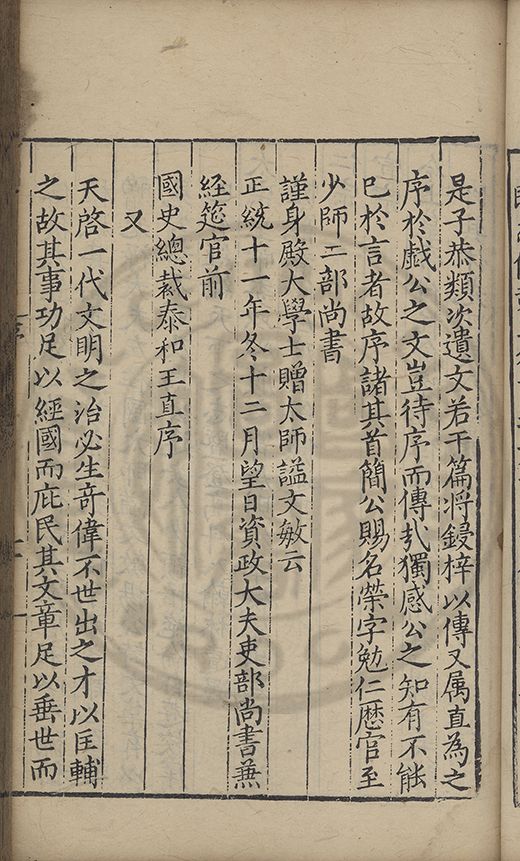 是子恭類次遺文若干篇将鋟梓以傳又属直為之
序於戯公之文豈待序而傳㢤獨感公之知有不能
已於言者故序諸其首簡公賜名榮字勉仁歴官至
少師工部尚書
謹身殿大學士贈太師謚文敏云
正統十一年冬十二月望日資政大夫吏部尚書蕪
經筵官前
國史總裁泰和王直序
又
天啓一代文明之治必生竒偉不世出之才以匡輔
之故其事功足以經國而庇民其文章足以垂世而